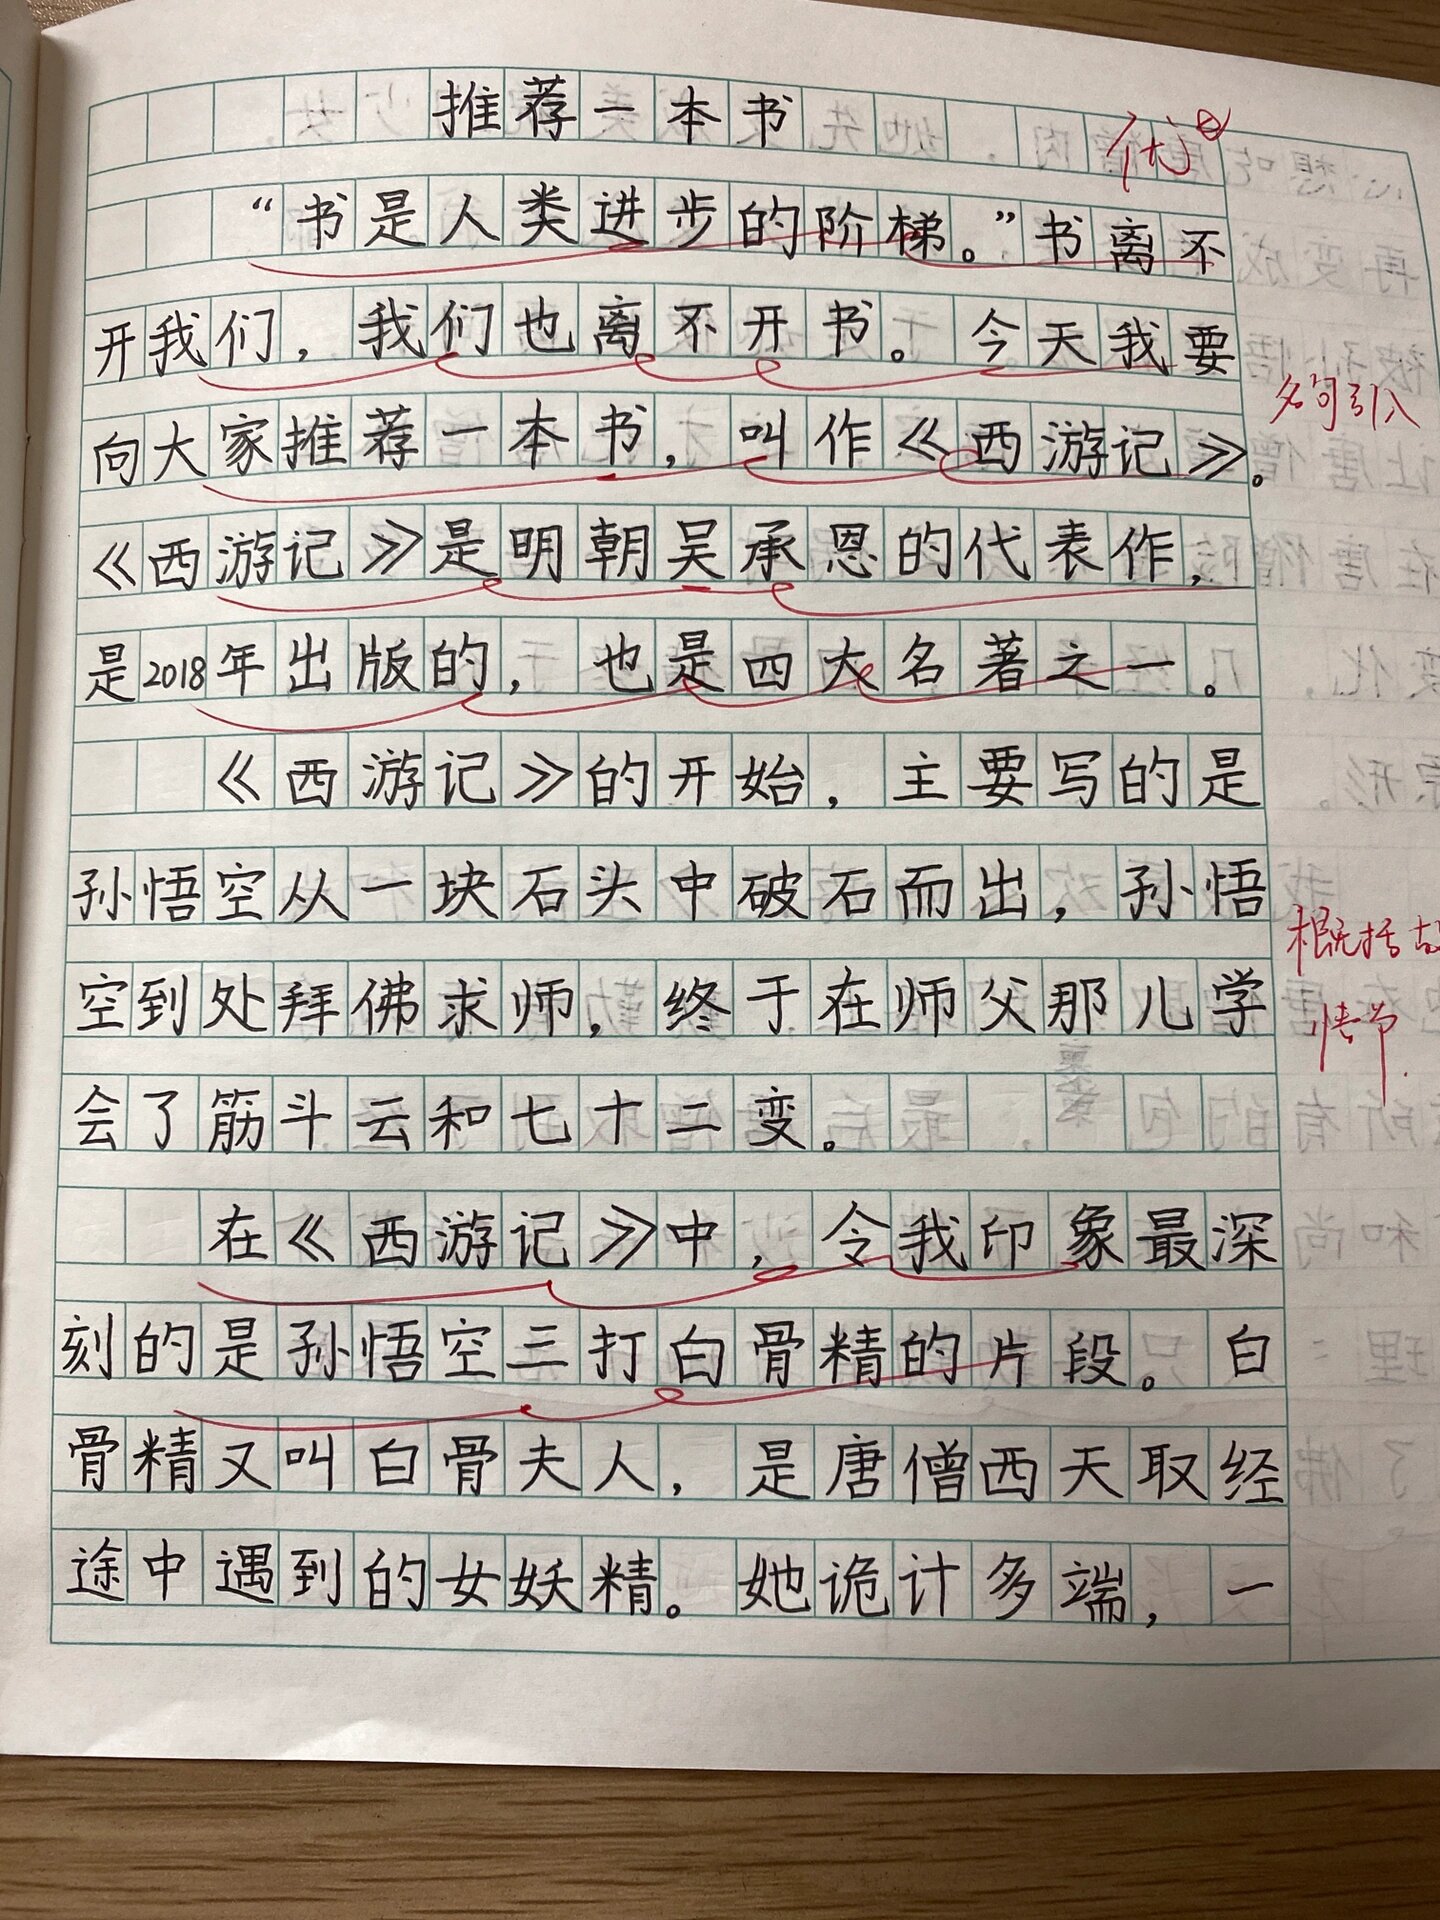 推荐一本书
优
“书是人类进步的阶梯。”书离不
开我们，我们也离不开书。今天我要
名句引入
向大家推荐一本书，叫作《西游记》。
《西游记》是明朝吴承恩的代表作，
是2018年出版的，也是四大名著之一。
《西游记》的开始，主要写的是
孙悟空从一块石头中破石而出，孙悟
概括故
空到处拜佛求师，终于在师父那儿学
情节.
会了筋斗云和七十二变。
在《西游记》中，令我印象最深
刻的是孙悟空三打白骨精的片段。白
骨精又叫白骨夫人，是唐僧西天取经
途中遇到的女妖精。她诡计多端，一